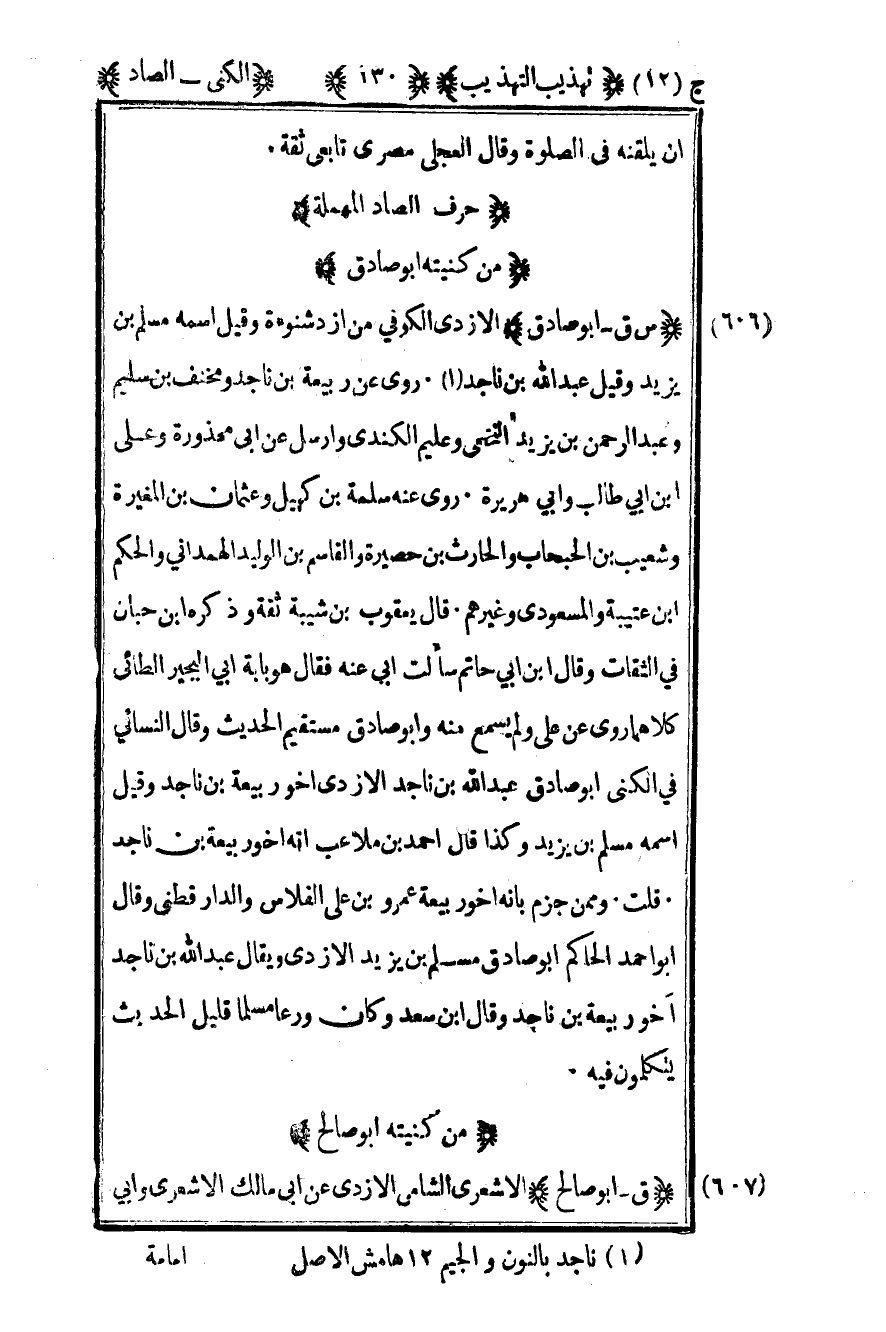 ج (١٢) ﴿ تهذيب التهذيب ﴾ ﴿ ١٣٠ ﴾ ﴿ الكنى ــ الصاد ﴾
ان يلقنه فى الصلوة وقال العجلى مصرى تابعى ثقة ٠
﴿ حرف الصاد المهملة ﴾
﴿ من كنيته ابوصادق ﴾
(٦٠٦) ﴿ س ق ــ ابوصادق ﴾ الازدى الكوفي من ازدشنوءة وقيل اسمه مسلم بن
يزيد وقيل عبدالله بن ناجد (١) ٠ روى عن ربيعة بن ناجد ومخنف بن سليم
وعبدالرحمن بن يزيد النخعى وعليم الكندى وارسل عن ابى محذورة وعلى
ابن ابي طالب وابي هريرة ٠ روى عنه سلمة بن كهيل وعثمان بن المغيرة
وشعيب بن الحبحاب والحارث بن حصيرة والقاسم بن الوليد الهمداني والحكم
ابن عتيبة والمسعودى وغيرهم ٠ قال يعقوب بن شيبة ثقة وذكره ابن حبان
في الثقات وقال ابن ابي حاتم سألت ابي عنه فقال هو بابة ابي البحير الطائى
كلاهما روى عن على ولم يسمع منه وابوصادق مستقيم الحديث وقال النسائي
في الكنى ابوصادق عبدالله بن ناجد الازدى اخو ربيعة بن ناجد وقيل
اسمه مسلم بن يزيد وكذا قال احمد بن ملاعب انه اخو ربيعة بن ناجد
٠ قلت ٠ وممن جزم بانه اخو ربيعة عمرو بن على الفلاس والدار قطنى وقال
ابواحمد الحاكم ابوصادق مسلم بن يزيد الازدى ويقال عبدالله بن ناجد
أخو ربيعة بن ناجد وقال ابن سعد وكان ورعا مسلما قليل الحديث
يتكلمون فيه ٠
﴿ من كنيته ابوصالح ﴾
(٦٠٧) ﴿ ق ــ ابوصالح ﴾ الاشعرى الشامى الازدى عن ابى مالك الاشعرى وابي
(١) ناجد بالنون و الجيم ١٢ هامش الاصل
امامة